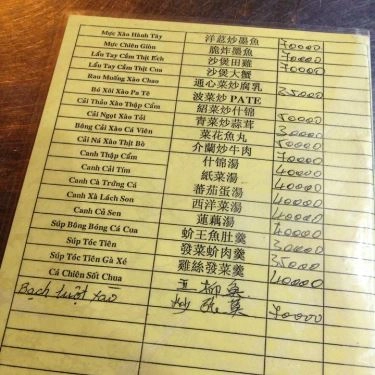 Mực Xào Hành Tây 洋蔥炒墨魚 70000
Mực Chiên Giòn 脆炸墨魚 70000
Lẩu Tay Cầm Thịt Ếch 沙煲田雞 70000
Lẩu Tay Cầm Thịt Cua 沙煲大蟹
Rau Muống Xào Chao 通心菜炒腐乳 35000
Bó Xôi Xào Pa Tê 波菜炒 PATE
Cải Thảo Xào Thập Cẩm 紹菜炒什锦
Cải Ngọt Xào Tỏi 青菜炒蒜茸
Bông Cải Xào Cá Viên 菜花魚丸
Cải Ná Xào Thịt Bò 介蘭炒牛肉
Canh Thập Cẩm 什锦湯
Canh Cải Tím 紙菜湯 40000
Canh Cà Trứng Cá 蕃茄蛋湯 40000
Canh Xà Lách Son 西洋菜湯 40000
Canh Củ Sen 蓮藕湯 40000
Súp Bông Bóng Cá Cua 蚧王魚肚羹
Súp Tóc Tiên 發菜蚧肉羹
Súp Tóc Tiên Gà Xé 雞絲發菜羹
Cá Chiên Sốt Chua
Bạch tuột xào 炒 70000